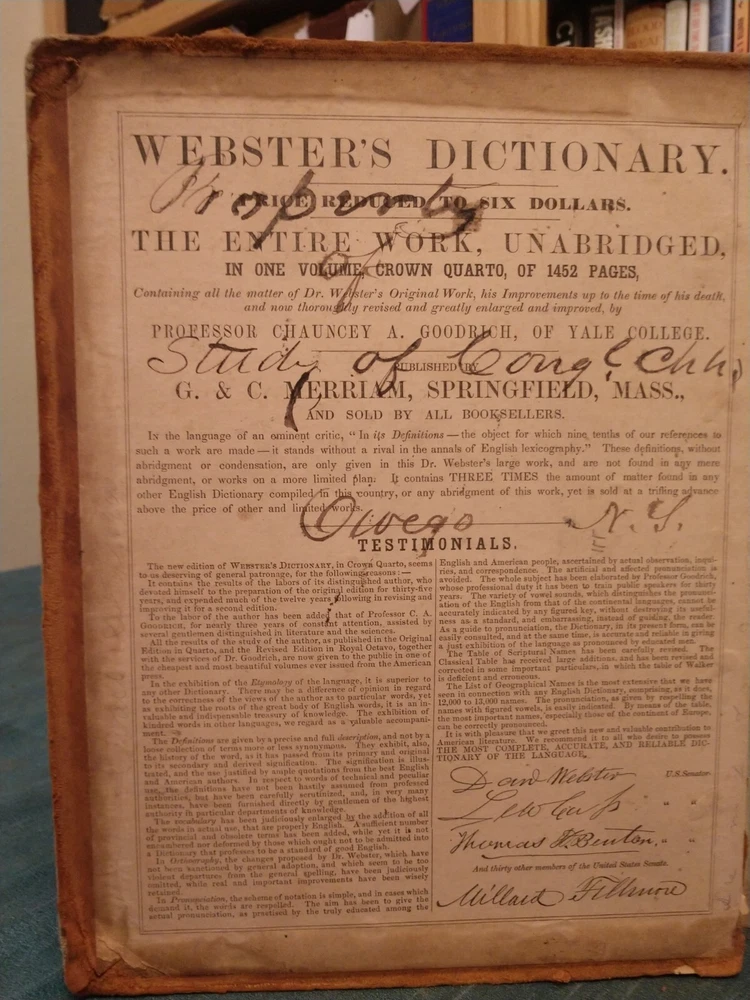 WEBSTER'S DICTIONARY.
Property
PRICE REDUCED TO SIX DOLLARS.
THE ENTIRE WORK, UNABRIDGED,
of
IN ONE VOLUME, CROWN QUARTO, OF 1452 PAGES,
Containing all the matter of Dr. Webster's Original Work, his Improvements up to the time of his death,
and now thoroughly revised and greatly enlarged and improved, by
PROFESSOR CHAUNCEY A. GOODRICH, OF YALE COLLEGE.
Study of Congl. Chh,
PUBLISHED BY
G. & C. MERRIAM, SPRINGFIELD, MASS.,
AND SOLD BY ALL BOOKSELLERS.
In the language of an eminent critic, "In its Definitions — the object for which nine tenths of our references to
such a work are made — it stands without a rival in the annals of English lexicography." These definitions, without
abridgment or condensation, are only given in this Dr. Webster's large work, and are not found in any mere
abridgment, or works on a more limited plan. It contains THREE TIMES the amount of matter found in any
other English Dictionary compiled in this country, or any abridgment of this work, yet is sold at a trifling advance
above the price of other and limited works.
Owego N.Y.
TESTIMONIALS.
The new edition of WEBSTER'S DICTIONARY, in Crown Quarto, seems
to us deserving of general patronage, for the following reasons: —
It contains the results of the labors of its distinguished author, who
devoted himself to the preparation of the original edition for thirty-five
years, and expended much of the twelve years following in revising and
improving it for a second edition.
To the labor of the author has been added that of Professor C. A.
GOODRICH, for nearly three years of constant attention, assisted by
several gentlemen distinguished in literature and the sciences.
All the results of the study of the author, as published in the Original
Edition in Quarto, and the Revised Edition in Royal Octavo, together
with the services of Dr. Goodrich, are now given to the public in one of
the cheapest and most beautiful volumes ever issued from the American
press.
In the exhibition of the Etymology of the language, it is superior to
any other Dictionary. There may be a difference of opinion in regard
to the correctness of the views of the author as to particular words, yet
as exhibiting the roots of the great body of English words, it is an in-
valuable and indispensable treasury of knowledge. The exhibition of
kindred words in other languages, we regard as a valuable accompani-
ment.
The Definitions are given by a precise and full description, and not by a
loose collection of terms more or less synonymous. They exhibit, also,
the history of the word, as it has passed from its primary and original
to its secondary and derived signification. The signification is illus-
trated, and the use justified by ample quotations from the best English
and American authors. In respect to words of technical and peculiar
use, the definitions have not been hastily assumed from professed
authorities, but have been carefully scrutinized, and, in very many
instances, have been furnished directly by gentlemen of the highest
authority in particular departments of knowledge.
The vocabulary has been judiciously enlarged by the addition of all
the words in actual use, that are properly English. A sufficient number
of provincial and obsolete terms has been added, while yet it is not
encumbered nor deformed by those which ought not to be admitted into
a Dictionary that professes to be a standard of good English.
In Orthography, the changes proposed by Dr. Webster, which have
not been sanctioned by general adoption, and which seem to be too
violent departures from the general spelling, have been judiciously
omitted, while real and important improvements have been wisely
retained.
In Pronunciation, the scheme of notation is simple, and in cases which
demand it, the words are respelled. The aim has been to give the
actual pronunciation, as practised by the truly educated among the
English and American people, ascertained by actual observation, inqui-
ries, and correspondence. The artificial and affected pronunciation is
avoided. The whole subject has been elaborated by Professor Goodrich,
whose professional duty it has been to train public speakers for thirty
years. The variety of vowel sounds, which distinguishes the pronunci-
ation of the English from that of the continental languages, cannot be
accurately indicated by any figured key, without destroying its useful-
ness as a standard, and embarrassing, instead of guiding, the reader.
As a guide to pronunciation, the Dictionary, in its present form, can be
easily consulted, and at the same time, is accurate and reliable in giving
a just exhibition of the language as pronounced by educated men.
The Table of Scriptural Names has been carefully revised. The
Classical Table has received large additions, and has been revised and
corrected in some important particulars, in which the table of Walker
is deficient and erroneous.
The List of Geographical Names is the most extensive that we have
seen in connection with any English Dictionary, comprising, as it does,
12,000 to 13,000 names. The pronunciation, as given by respelling the
names with figured vowels, is easily indicated. By means of the table,
the most important names, especially those of the continent of Europe,
can be correctly pronounced.
It is with pleasure that we greet this new and valuable contribution to
American literature. We recommend it to all who desire to possess
THE MOST COMPLETE, ACCURATE, AND RELIABLE DIC-
TIONARY OF THE LANGUAGE.
Danl Webster U.S. Senator.
Lew Cass " "
Thomas H. Benton, " "
And thirty other members of the United States Senate.
Millard Fillmore